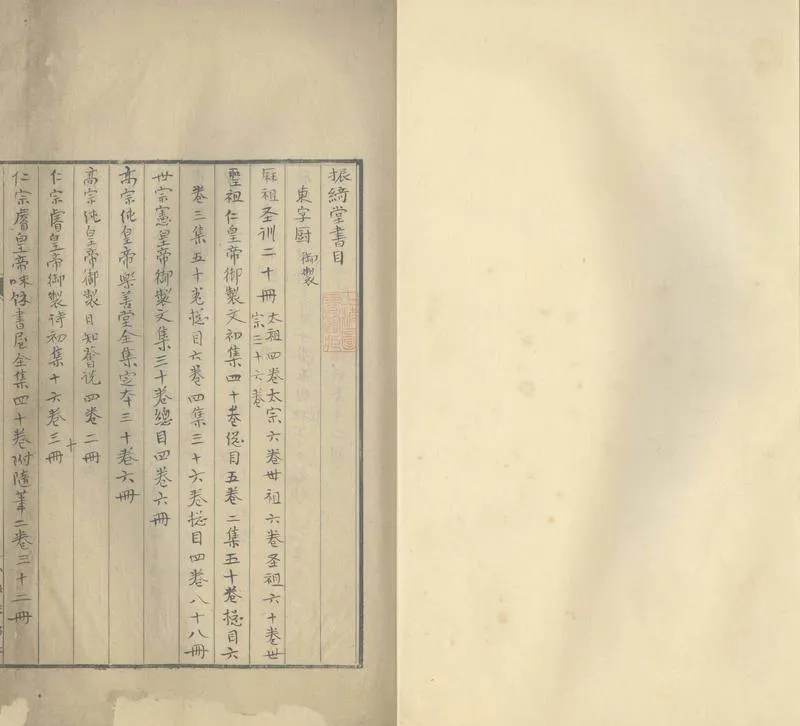 振綺堂書目
東字厨 御製
庥祖圣训二十冊 太祖四卷太宗六卷世祖六卷圣祖六十卷世
宗三十六卷
聖祖仁皇帝御製文初集四十卷總目五卷二集五十卷總目六
卷三集五十卷總目六卷四集三十六卷總目四卷八十八冊
世宗憲皇帝御製文集三十卷總目四卷六冊
高宗純皇帝樂善堂全集定本三十卷六冊
高宗純皇帝御製日知薈说四卷二冊
仁宗睿皇帝御製诗初集十六卷三冊
十
仁宗睿皇帝味馀書屋全集四十卷附隨筆二卷三十二冊